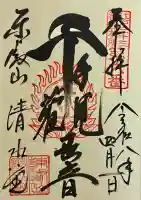 奉拝
令和八年
四月一日
千手観世音
東叡山 清水堂